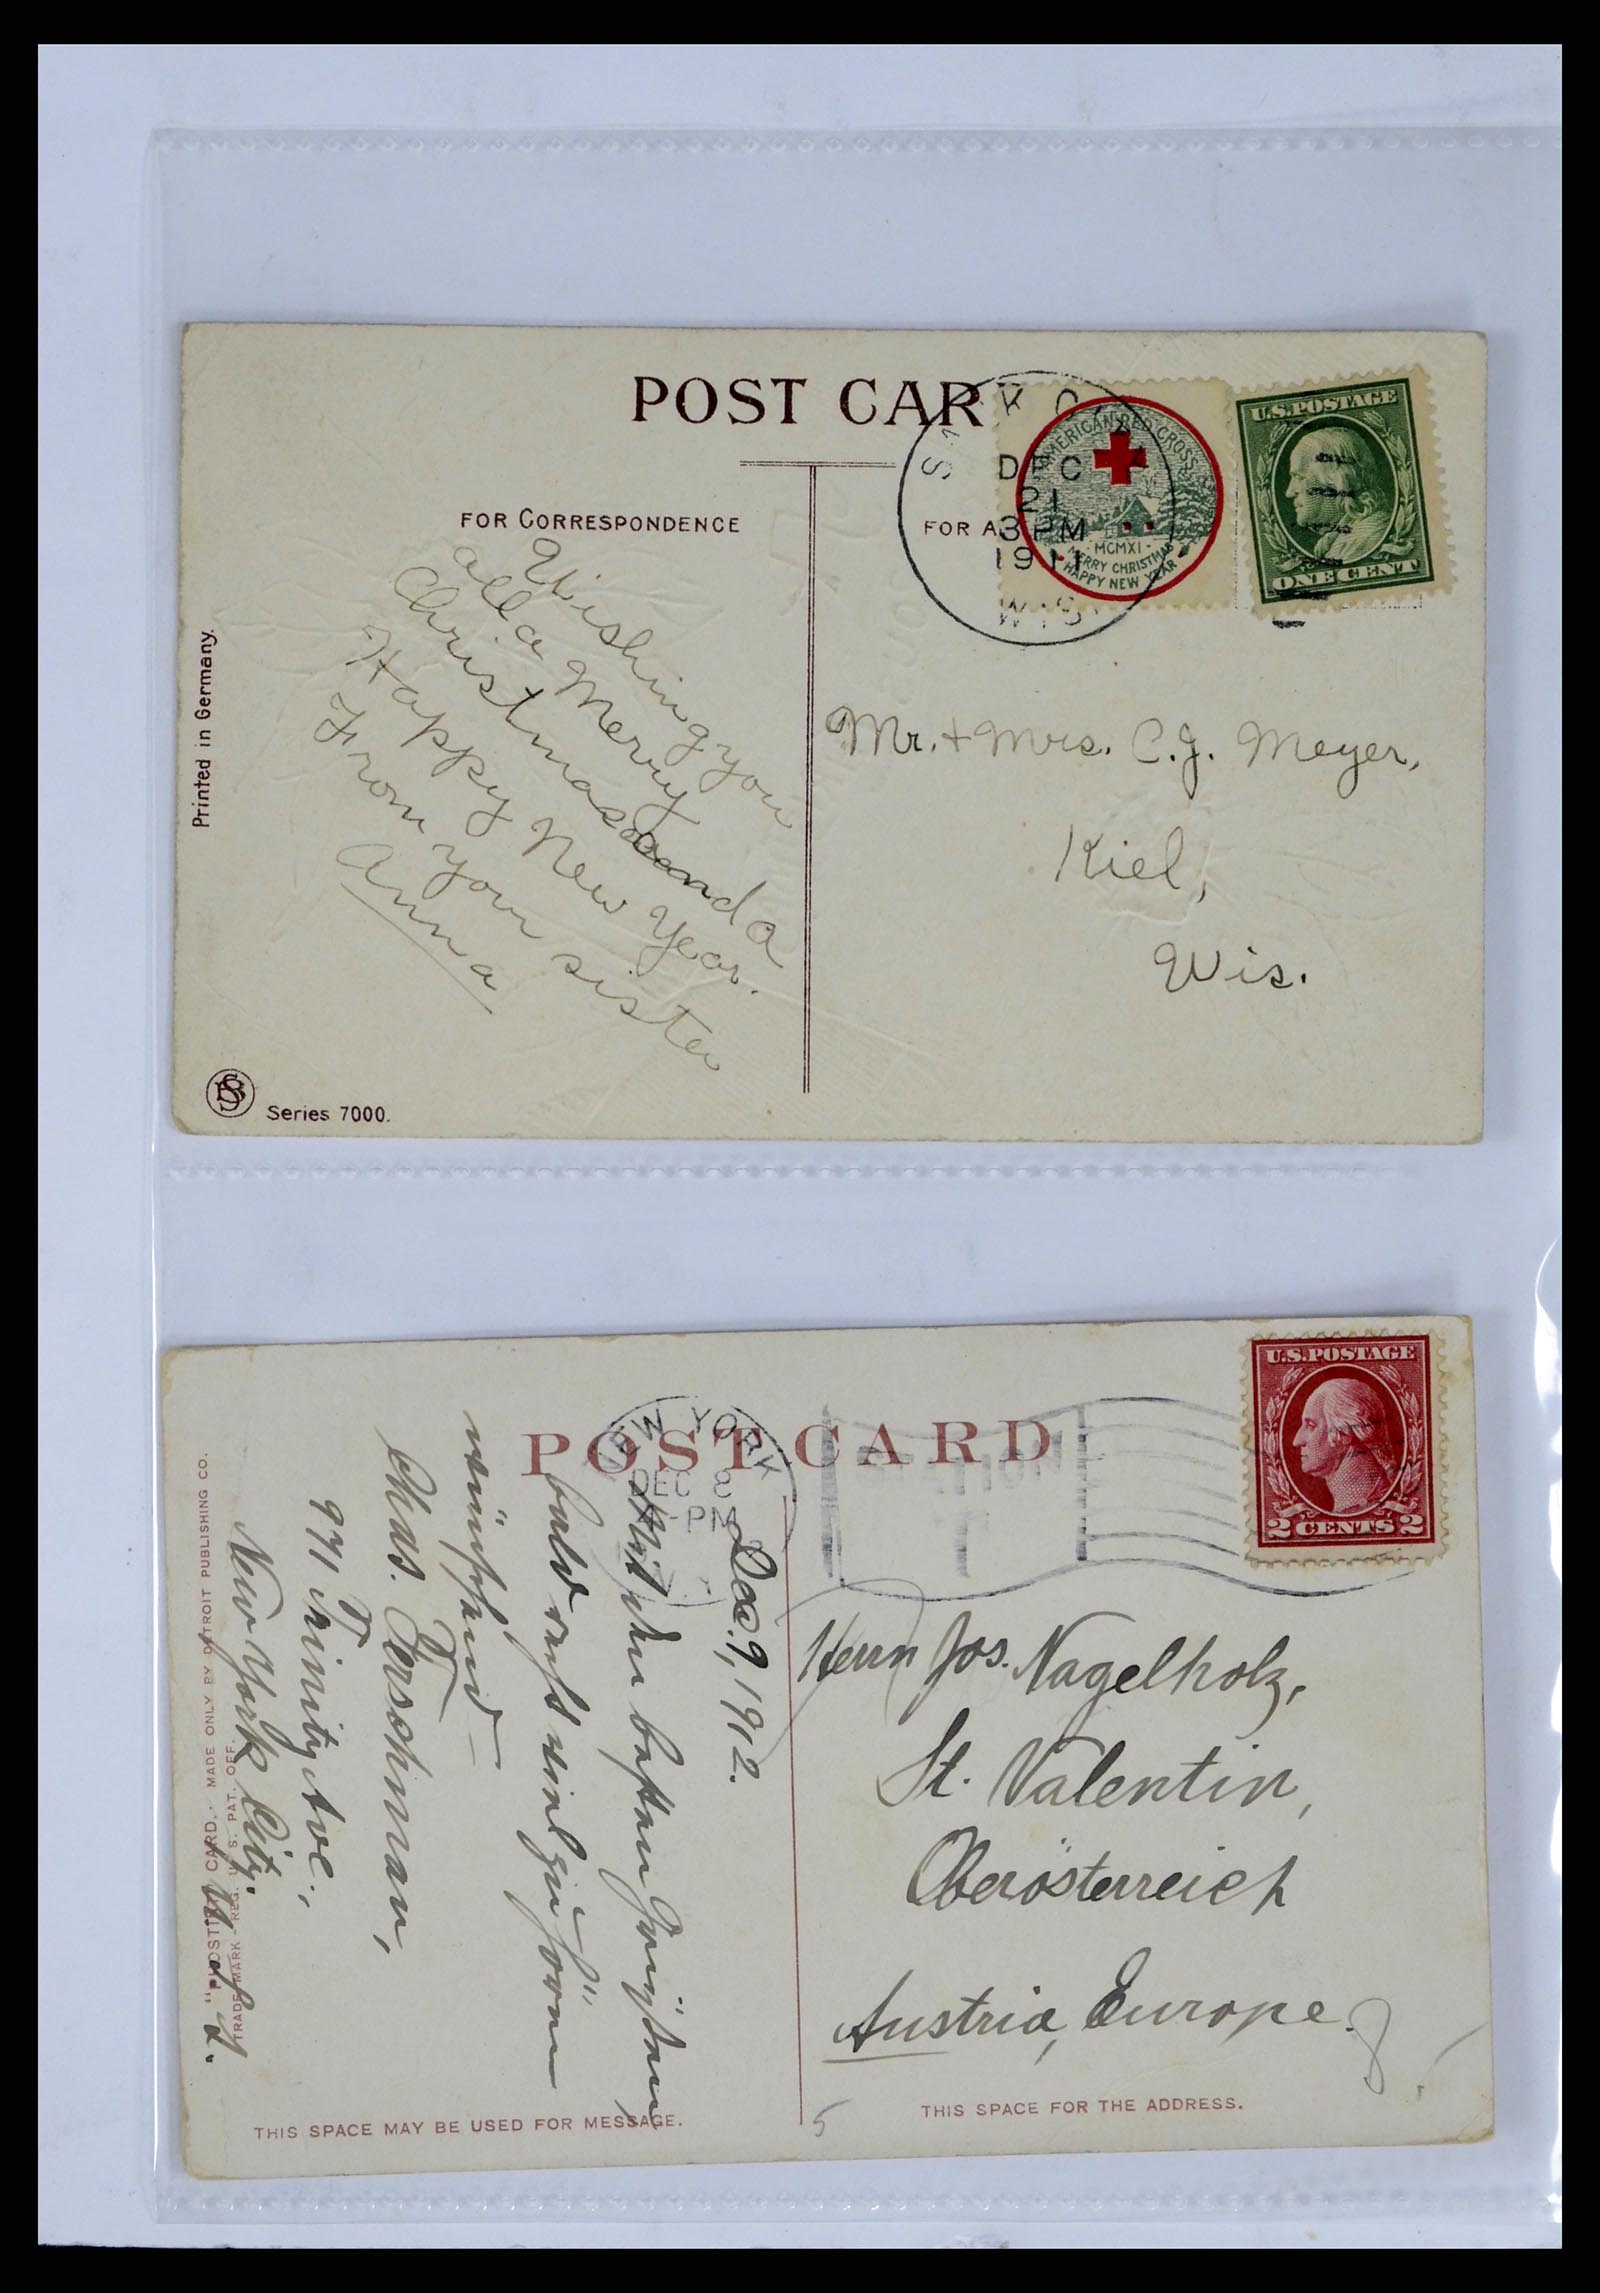 POST CAR
FOR CORRESPONDENCE
FOR A
DEC
21
3 PM
1911
WIS
AMERICAN RED CROSS
MCMXI
MERRY CHRISTMAS
HAPPY NEW YEAR
U.S. POSTAGE
ONE CENT
Wishing you
all a Merry
Christmas and a
Happy New Year.
From your sister
Anna
Mr. + Mrs. C.J. Meyer,
Kiel,
Wis.
Printed in Germany.
Series 7000.
POST CARD
NEW YORK
DEC 8
-PM
U.S. POSTAGE
2 CENTS 2
Dec. 9, 1912.
Mit den besten
bald
wünschend —
Chas. Gerschman,
971 Trinity Ave.,
New York City.
Herrn Jos. Nagelholz,
St. Valentin,
Oberösterreich
Austria, Europe.
"PHOSTINT" CARD. MADE ONLY BY DETROIT PUBLISHING CO.
TRADE MARK REG. U. S. PAT. OFF.
THIS SPACE MAY BE USED FOR MESSAGE.
THIS SPACE FOR THE ADDRESS.
5